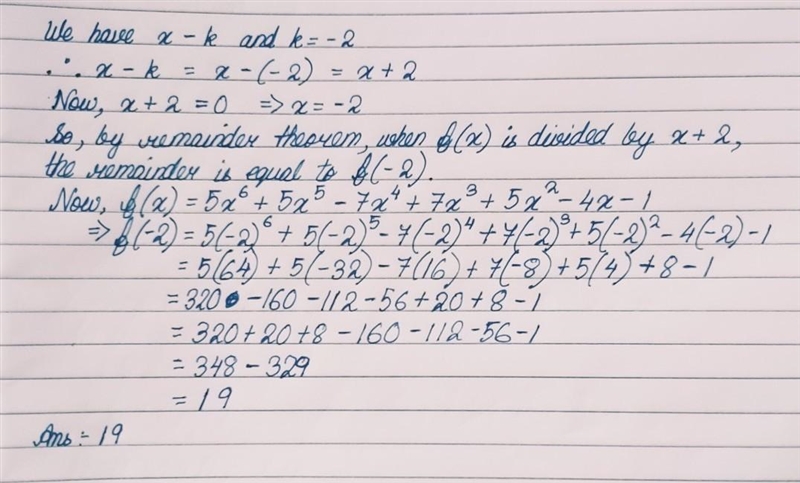 We have x - k and k = -2
∴ x - k = x - (-2) = x + 2
Now, x + 2 = 0 ⇒ x = -2
So, by remainder theorem, when f(x) is divided by x + 2,
the remainder is equal to f(-2).
Now, f(x) = 5x⁶ + 5x⁵ - 7x⁴ + 7x³ + 5x² - 4x - 1
⇒ f(-2) = 5(-2)⁶ + 5(-2)⁵ - 7(-2)⁴ + 7(-2)³ + 5(-2)² - 4(-2) - 1
= 5(64) + 5(-32) - 7(16) + 7(-8) + 5(4) + 8 - 1
= 320 - 160 - 112 - 56 + 20 + 8 - 1
= 320 + 20 + 8 - 160 - 112 - 56 - 1
= 348 - 329
= 19
Ans :- 19